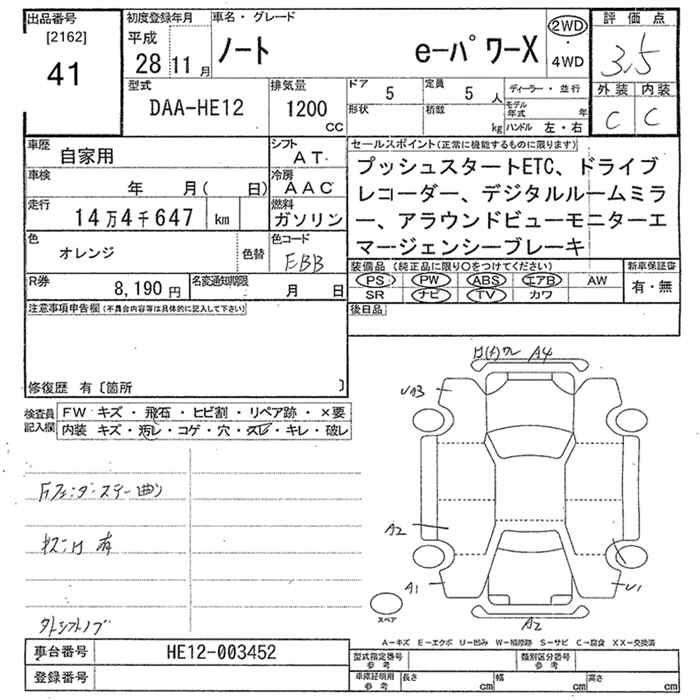 出品番号
[2162]
41
初度登録年月
平成
28 11 月
車名・グレード
ノート eーパワーX
2WD
・
4WD
評価点
3.5
外装 内装
C C
型式
DAA-HE12
排気量
1200
CC
ドア 5
定員 5 人
形状
積載 kg
ディーラー・並行
モデル年式 年
ハンドル 左・右
車歴
自家用
シフト
AT
セールスポイント(正常に機能するものに限ります)
プッシュスタートETC、ドライブ
レコーダー、デジタルルームミラ
ー、アラウンドビューモニターエ
マージェンシーブレーキ
車検
年 月( 日)
冷房
AAC
走行
14万4千647 km
燃料
ガソリン
色
オレンジ
色替
色コード
EBB
R券
8,190 円
名変通知期限
月 日
装備品(純正品に限り○をつけてください)
PS PW ABS エアB AW
SR ナビ TV カワ
新車保証書
有・無
後日品
注意事項申告欄(不具合内容等は具体的に記入して下さい)
修復歴 有〔箇所 〕
検査員記入欄
FW キズ・飛石・ヒビ割・リペア跡・×要
内装 キズ・汚レ・コゲ・穴・スレ・キレ・破レ
A4
UA3
A2
A1
U1
A2
スペア
A−キズ E−エクボ U−凹み W−補修跡 S−サビ C−腐食 XX−交換済
車台番号
HE12-003452
登録番号
型式指定番号
参考
類別区分番号
参考
車庫証明用
参考
長さ cm
幅 cm
高さ cm